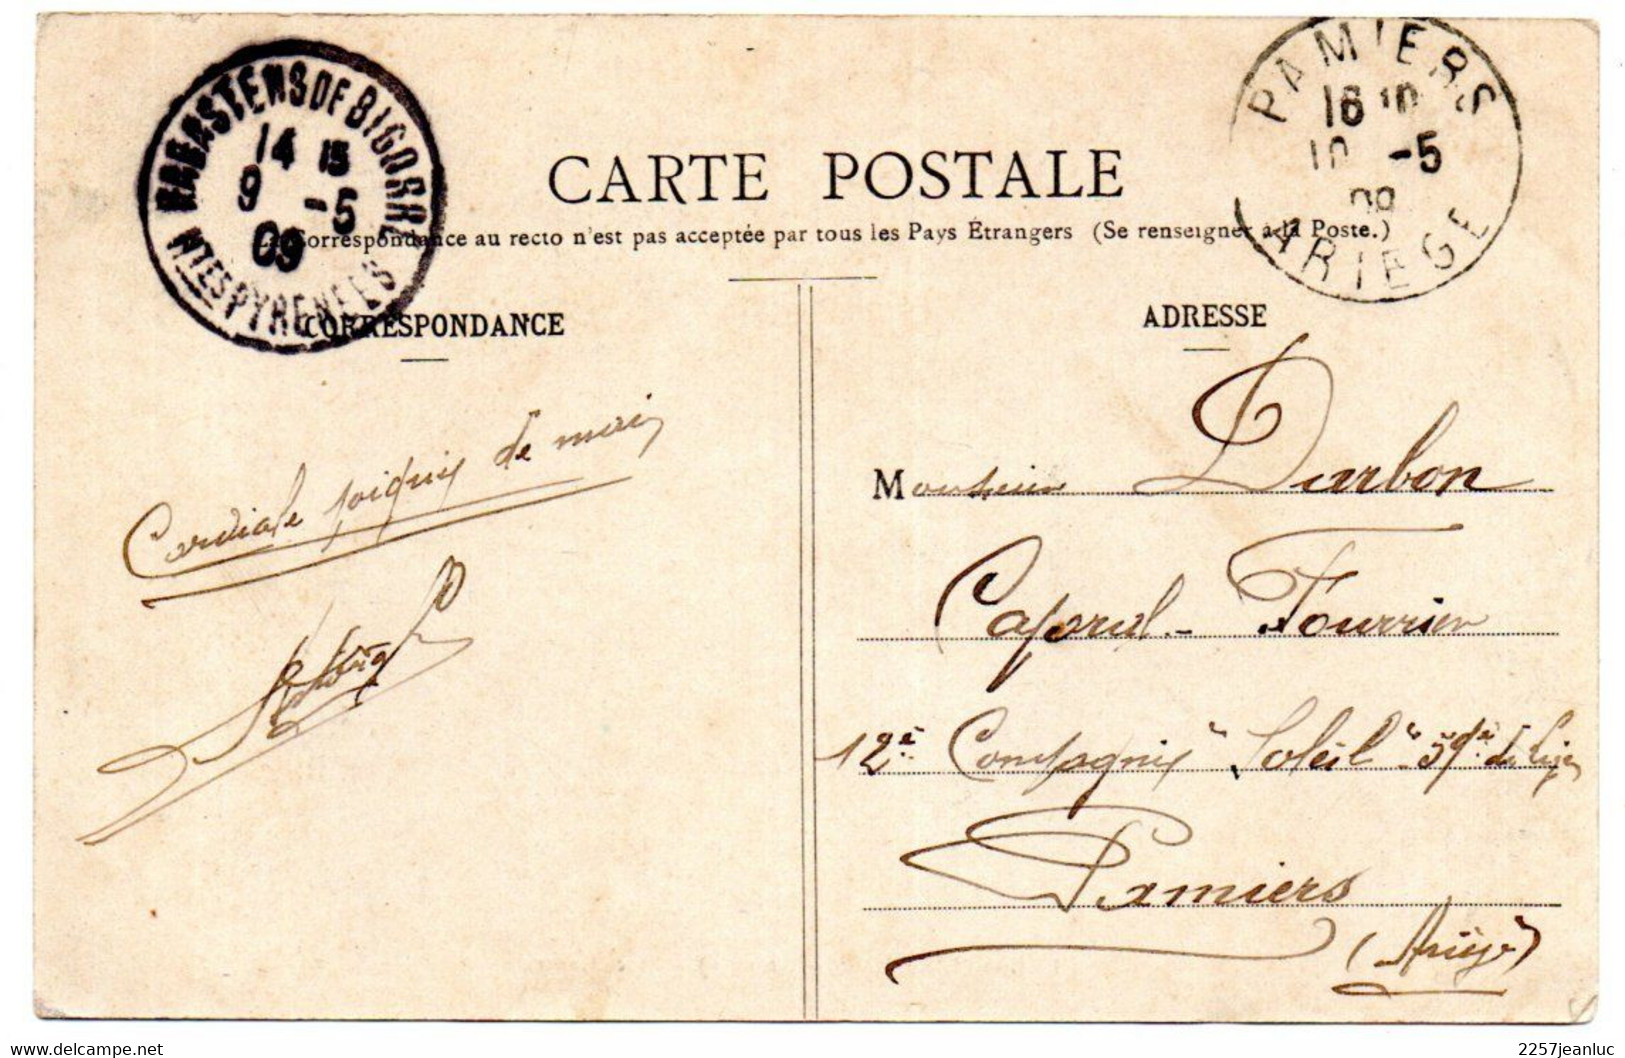 RABASTENS DE BIGORRE
14 15
9 -5
09
HTES PYRENEES
PAMIERS
16 10
10 -5
09
ARIEGE
CARTE POSTALE
La Correspondance au recto n'est pas acceptée par tous les Pays Étrangers (Se renseigner à la Poste.)
CORRESPONDANCE
Cordiale poignée de main
ADRESSE
Monsieur Darbon
Caporal-Fourrier
12e Compagnie "Soleil" 59e de Ligne
Pamiers
(Ariège)
2257jeanluc